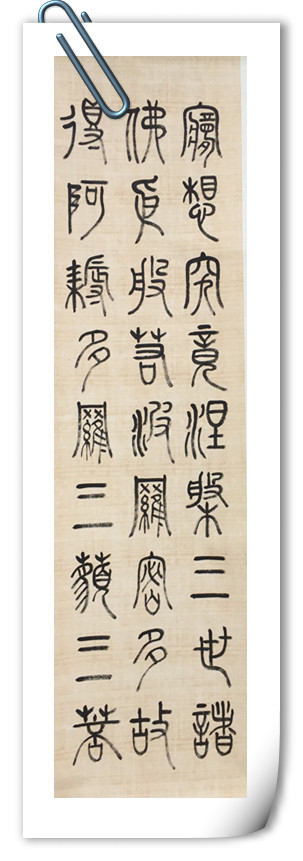 夢想究竟涅槃三世諸
佛依般若波羅密多故
得阿耨多羅三藐三菩